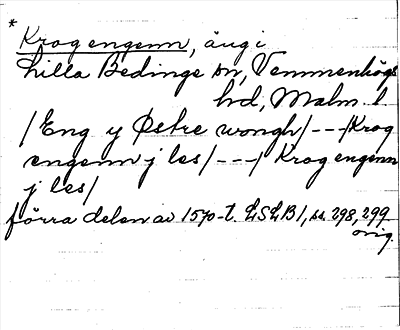 *
Krog engenn, äng i
Lilla Bedinge sn, Vemmenhögs
hd, Malm. l.
/Eng y Østre wongh/---/Krog
engenn j les/---/ Krog engenn
j les/
förra delen av 1570-t. LSLB 1, ss. 298, 299
orig.